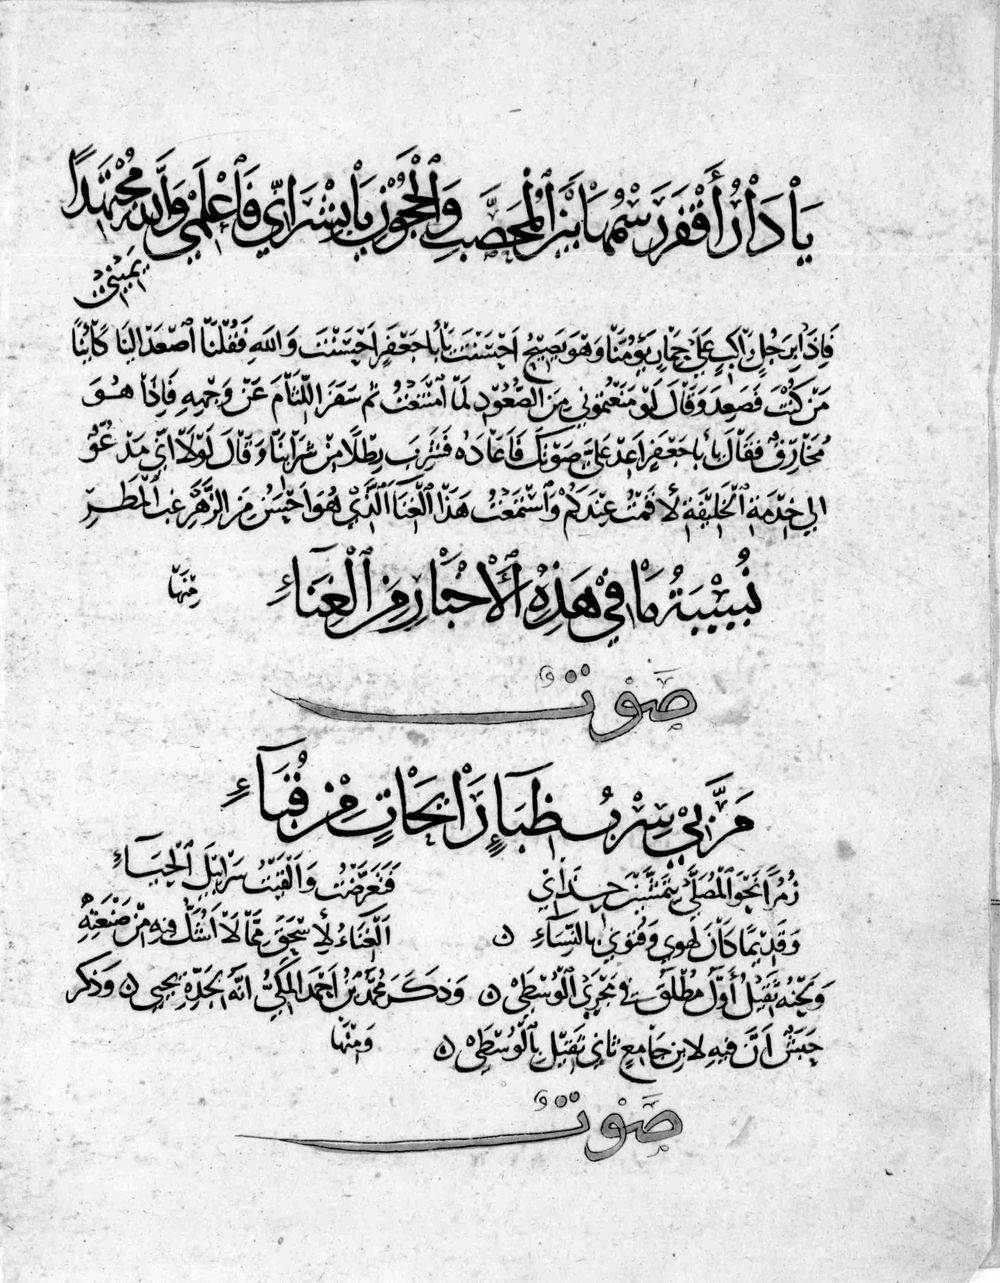 يَا دَارُ أَقْفَرَ رَسْمُهَا بَيْنَ الْمُحَصَّبِ وَالْحَجُونِ يَا بِشْرَ إِنِّي فَاعْلَمِي وَاللهِ مُجْتَهِدًا
يَمِينِي
فَإِذَا بِرَجُلٍ رَاكِبٍ عَلَى حِمَارٍ يَؤُمُّنَا وَهُوَ يَصِيحُ أَحْسَنْتَ يَا أَبَا جَعْفَرٍ أَحْسَنْتَ وَاللهِ فَقُلْنَا اصْعَدْ إِلَيْنَا كَائِنًا
مَنْ كُنْتَ فَصَعِدَ وَقَالَ لَوْ مَنَعْتُمُونِي مِنَ الصُّعُودِ لَمَا امْتَنَعْتُ ثُمَّ سَفَرَ اللِّثَامَ عَنْ وَجْهِهِ فَإِذَا هُوَ
مُخَارِقٌ فَقَالَ يَا أَبَا جَعْفَرٍ أَعِدْ عَلَيَّ صَوْتَكَ فَأَعَادَهُ فَشَرِبَ رِطْلًا مِنْ شَرَابِنَا وَقَالَ لَوْلَا أَنِّي مَدْعُوٌّ
إِلَى خِدْمَةِ الْخَلِيفَةِ لَأَقَمْتُ عِنْدَكُمْ وَاسْتَمَعْتُ هَذَا الْغِنَاءَ الَّذِي هُوَ أَحْسَنُ مِنَ الزَّهْرِ غِبَّ الْمَطَرِ
نِسْبَةُ مَا فِي هَذِهِ الْأَخْبَارِ مِنَ الْغِنَاءِ مِنْهَا
صَوْتٌ
مَرَّ بِي سِرْبُ ظِبَاءٍ رَائِحَاتٍ مِنْ قُبَاءِ
زُمَرًا نَحْوَ الْمُصَلَّى يَتَمَشَّيْنَ حِذَائِي فَتَعَرَّضْتُ وَأَلْقَيْتُ سَرَابِيلَ الْحَيَاءِ
وَقَدِيمًا كَانَ لَهْوِي وَفُتُونِي بِالنِّسَاءِ ٥ الْغِنَاءُ لِإِسْحَقَ مِمَّا لَا أَشُكُّ فِيهِ مِنْ صَنْعَتِهِ
وَلَحْنُهُ ثَقِيلٌ أَوَّلُ مُطْلَقٌ فِي مَجْرَى الْوُسْطَى ٥ وَذَكَرَ مُحَمَّدُ بْنُ أَحْمَدَ الْمَكِّيُّ أَنَّهُ لِجَدِّهِ يَحْيَى ٥ وَذَكَرَ
حَبَشٌ أَنَّ فِيهِ لِابْنِ جَامِعٍ ثَانِيَ ثَقِيلٍ بِالْوُسْطَى ٥ وَمِنْهَا
صَوْتٌ